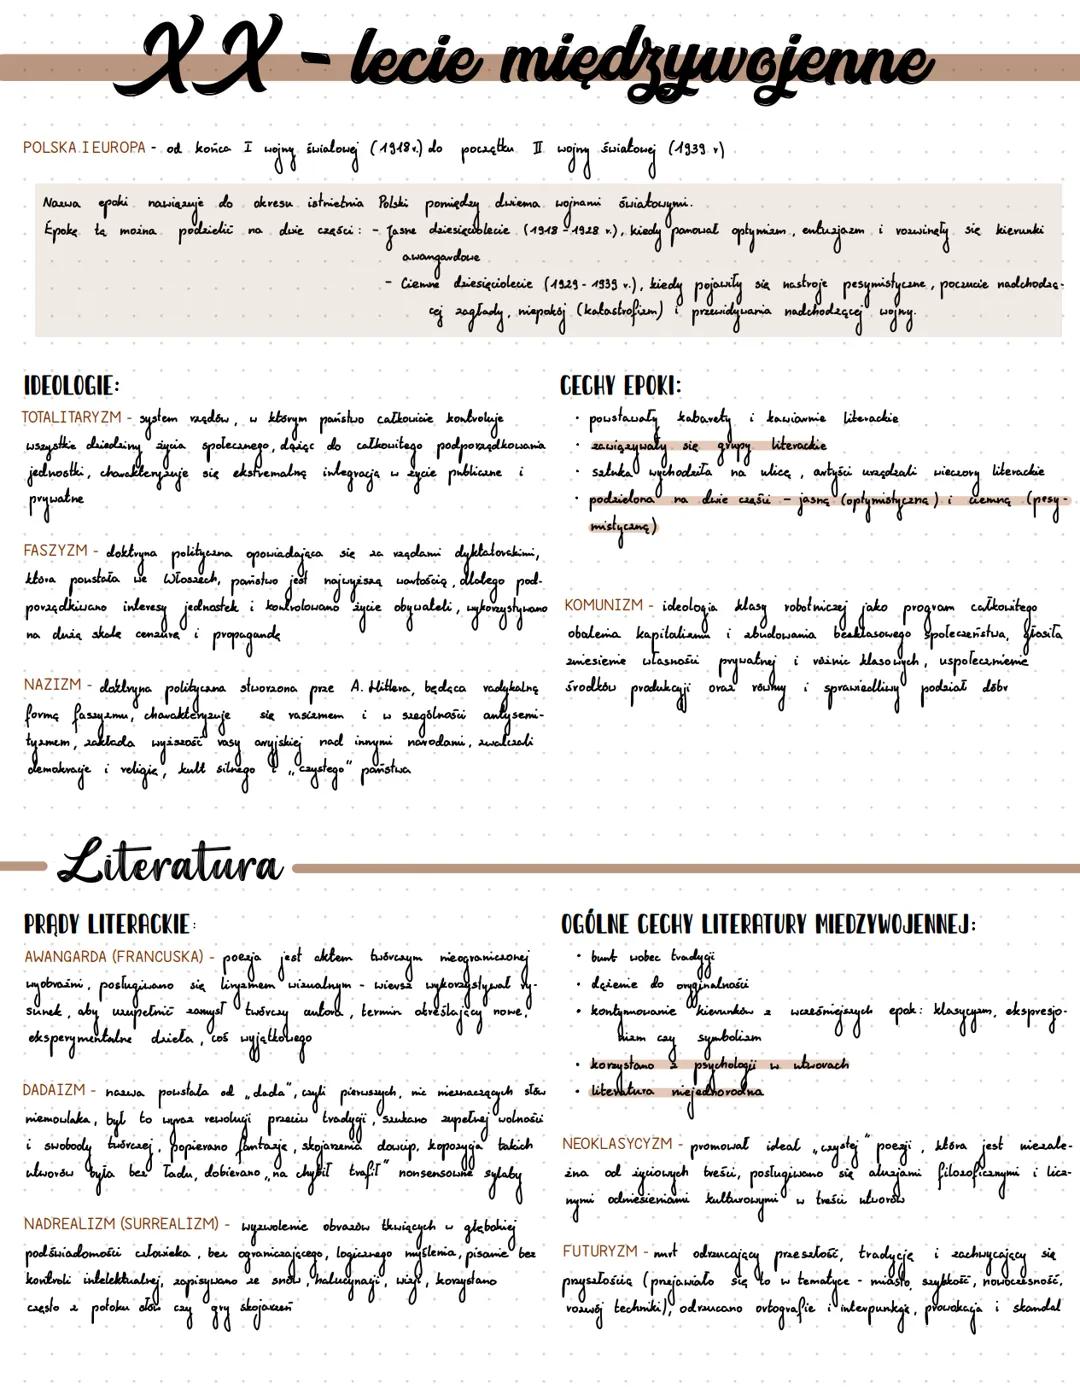 XX - lecie międzywojenne
POLSKA I EUROPA - od końca I wojny światowej (1918 r.) do początku II wojny światowej (1939 r)
Nazwa epoki nawiązuje do okresu istnietnia Polski pomiędzy dwiema wojnami światowymi.
Epokę tą można podzielić na dwie części: - Jasne dziesięciolecie (1918 - 1928 r.), kiedy panował optymizm, entuzjazm i rozwinęły się kierunki
awangardowe
- Ciemne dziesięciolecie (1929 - 1939 r.), kiedy pojawiły się nastroje pesymistyczne, poczucie nadchodzą-
cej zagłady, niepokój (katastrofizm) i przewidywania nadchodzącej wojny.
IDEOLOGIE:
TOTALITARYZM - system rządów, w którym państwo całkowicie kontroluje
wszystkie dziedziny życia społecznego, dążąc do całkowitego podporządkowania
jednostki, charakteryzuje się ekstremalną integracją w życie publiczne i
prywatne
FASZYZM - doktryna polityczna opowiadająca się za rządami dyktatorskimi,
która powstała we Włoszech, państwo jest najwyższą wartością, dlatego pod-
porządkiwano interesy jednostek i kontrolowano życie obywateli, wykorzystywano
na dużą skalę cenzurę i propagandę
NAZIZM - doktryna polityczna stworzona prze A. Hitlera, będąca radykalną
formą faszyzmu, charakteryzuje się rasizmem i w szególności antysemi-
tyzmem, zakłada wyższość rasy aryjskiej nad innymi narodami, zwalczali
demokrację i religię, kult silnego i „czystego" państwa
CECHY EPOKI:
• powstawały kabarety i kawiarnie literackie
• zawiązywały się grupy literackie
• sztuka wychodziła na ulicę, artyści urządzali wieczory literackie
• podzielona na dwie części - jasną (optymistyczną) i ciemną (pesy-
mistyczną)
KOMUNIZM - ideologia klasy robotniczej jako program całkowitego
obalenia kapitalizmu i zbudowania bezklasowego społeczeństwa, głosiła
zniesienie własności prywatnej i różnic klasowych, uspołecznienie
środków produkcji oraz równy i sprawiedliwy podział dóbr
Literatura
PRĄDY LITERACKIE:
AWANGARDA (FRANCUSKA) - poezja jest aktem twórczym nieograniczonej
wyobraźni, posługiwano się liryzmem wizualnym - wiersz wykorzystywał ry-
sunek, aby uzupełnić zamysł twórczy autora, termin określający nowe,
eksperymentalne dzieła, coś wyjątkowego
DADAIZM - nazwa powstała od „dada", czyli pierwszych, nic nieznaczących słów
niemowlaka, był to wyraz rewolucji przeciw tradycji, szukano zupełnej wolności
i swobody twórczej, popierano fantazję, skojarzenia dowcip, kopozycja takich
utworów była bez ładu, dobierano „na chybił trafił" nonsensowne sylaby
NADREALIZM (SURREALIZM) - wyzwolenie obrazów tkwiących w głębokiej
podświadomości człowieka, bez ograniczającego, logicznego myślenia, pisanie bez
kontroli intelektualnej, zapisywano ze snów, halucynacji, wizji, korzystano
często z potoku słów czy gry skojarzeń
OGÓLNE CECHY LITERATURY MIEDZYWOJENNEJ:
• bunt wobec tradycji
• dążenie do oryginalności
• kontynuowanie kierunków z wcześniejszych epok: klasycyzm, ekspresjo-
nizm czy symbolizm
• korzystano z psychologii w utworach
• literatura niejednorodna
NEOKLASYCYZM - promował ideał „czystej" poezji, która jest niezale-
żna od życiowych treści, posługiwano się aluzjami filozoficznymi i licz-
nymi odniesieniami kulturowymi w treści utworów
FUTURYZM - nurt odrzucający przeszłość, tradycję i zachwycający się
przyszłością (przejawiało się to w tematyce - miasto, szybkość, nowoczesność,
rozwój techniki), odrzucano ortografię i interpunkcję, prowokacja i skandal